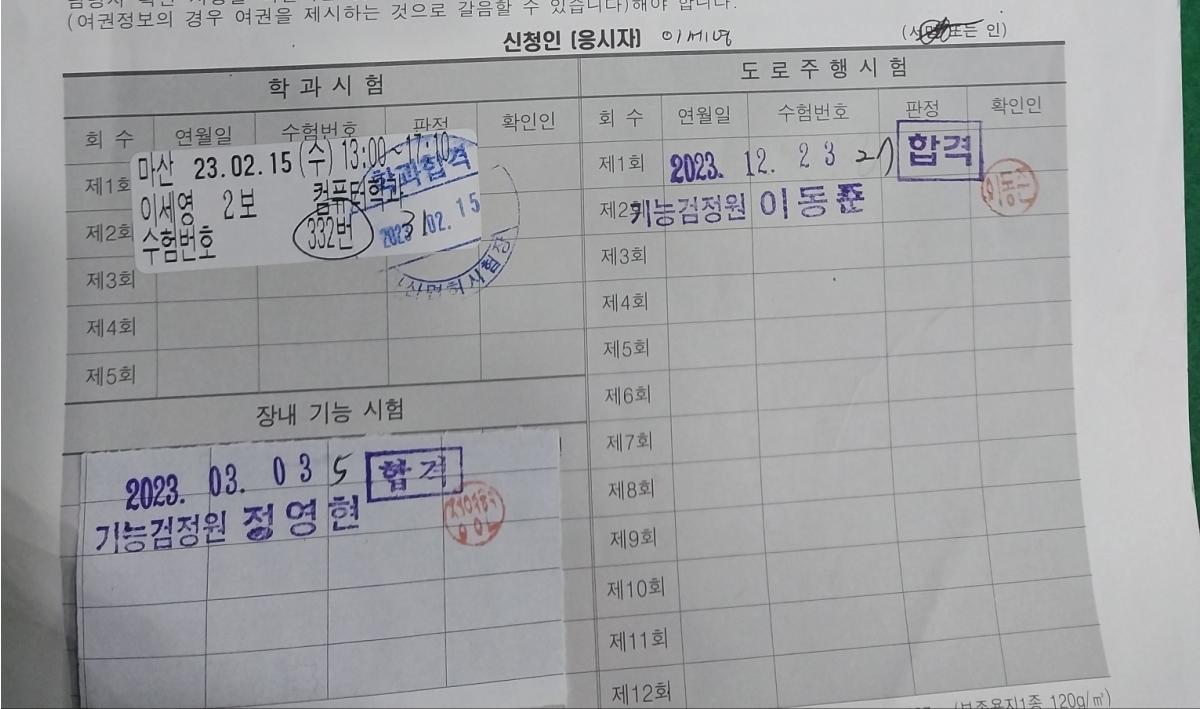 (여권정보의 경우 여권을 제시하는 것으로 갈음할 수 있습니다)해야 합니다.
신청인 (응시자) 이세영 (서명 또는 인)
학 과 시 험
회 수 연월일 수험번호 판정 확인인
제1회
제2회
제3회
제4회
제5회
마산 23.02.15 (수) 13:00~17:10
이세영 2보 컴퓨터학과
수험번호 332번
학과합격
2023. 02. 15
장내 기능 시험
2023. 03. 03 5 합격
기능검정원 정영현
도 로 주 행 시 험
회 수 연월일 수험번호 판정 확인인
제1회 2023. 12. 23 27 합격
제2회 기능검정원 이동준
제3회
제4회
제5회
제6회
제7회
제8회
제9회
제10회
제11회
제12회
(보존용지1종 120g/㎡)